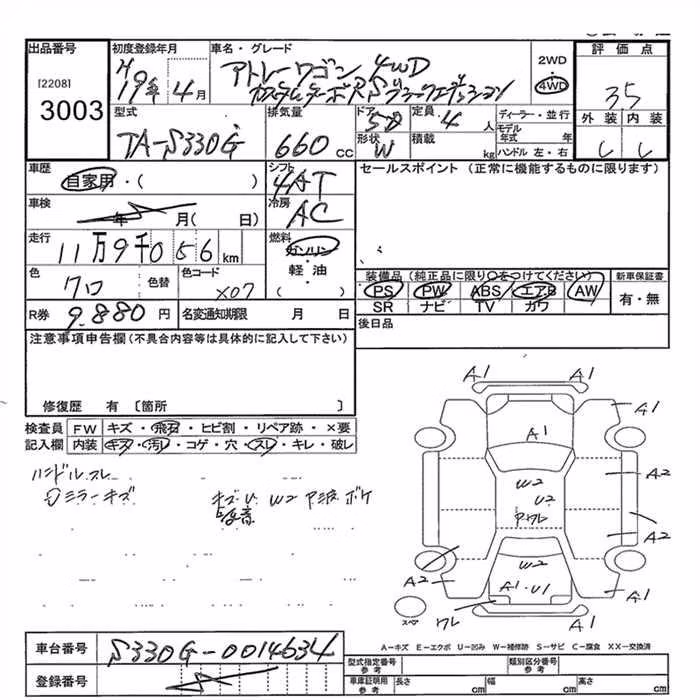 出品番号
[2208]
3003
初度登録年月
H19年 4月
車名・グレード
アトレーワゴン 4WD
カスタムターボRSブラックエディション
2WD
4WD
評価点
3.5
外装 内装
型式
TA-S330G
排気量
660 cc
ドア
5D
形状
W
定員
4 人
積載
kg
ディーラー・並行
モデル年式 年
ハンドル 左・右
車歴
自家用・( )
車検
年 月( 日)
走行
11万9千056 km
色
クロ
色替
色コード
X07
R券
9.880 円
名変通知期限 月 日
シフト
4AT
冷房
AC
燃料
ガソリン
軽油
( )
セールスポイント(正常に機能するものに限ります)
装備品(純正品に限り○をつけてください)
新車保証書
PS PW ABS エアB AW
SR ナビ TV カワ
有・無
後日品
注意事項申告欄(不具合内容等は具体的に記入して下さい)
修復歴 有 〔箇所 〕
検査員 記入欄
FW キズ・飛石・ヒビ割・リペア跡・×要
内装 キズ・汚レ・コゲ・穴・スレ・キレ・破レ
ハンドルスレ
ミラーキズ
キズ U W2 P波 ボケ
A1 A1
A1
A1
W2
U2
Pワレ
A2
A2
A2
W2
A1・U1
A1
ワレ
A1
スペア
A−キズ E−エクボ U−凹み W−補修跡 S−サビ C−腐食 XX−交換済
車台番号
S330G-0014634
登録番号
型式指定番号 参考
類別区分番号 参考
車庫証明用 参考
長さ cm 幅 cm 高さ cm